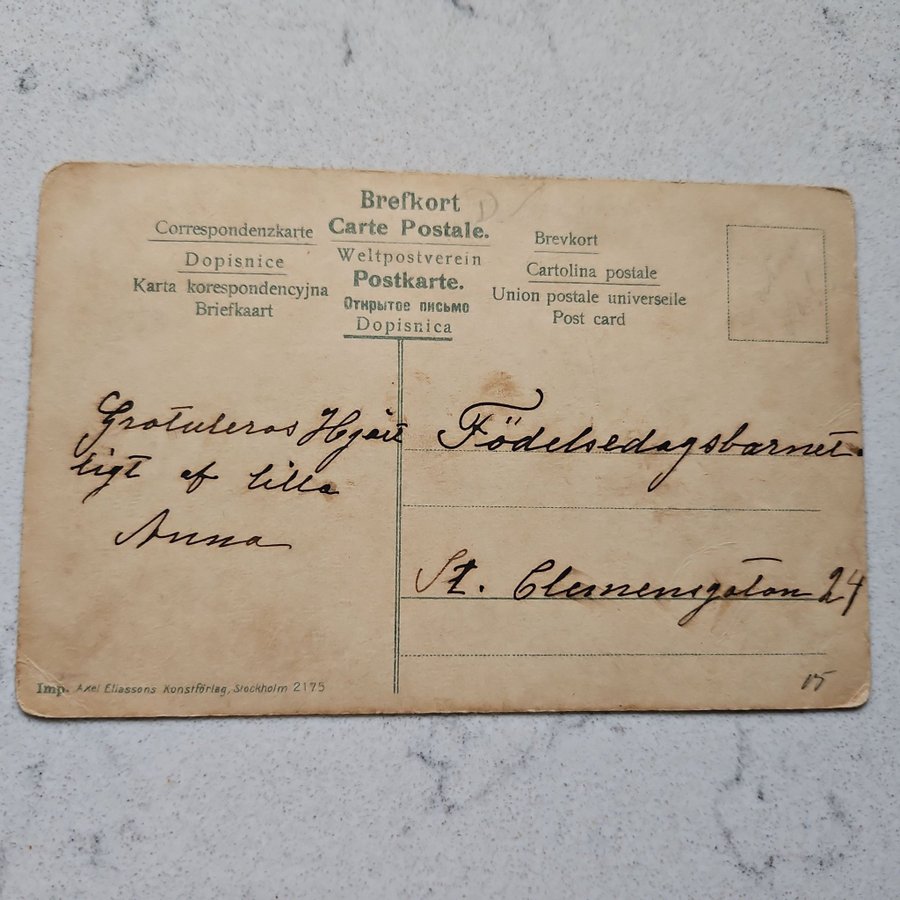 Brefkort
Carte Postale.
Weltpostverein
Postkarte.
Открытое письмо
Dopisnica
Correspondenzkarte
Dopisnice
Karta korespondencyjna
Briefkaart
Brevkort
Cartolina postale
Union postale universelle
Post card
Gratuleras Hjärt
ligt af lilla
Anna
Födelsedagsbarnet.
St. Clemensgatan 24
Imp. Axel Eliassons Konstförlag, Stockholm 2175
15